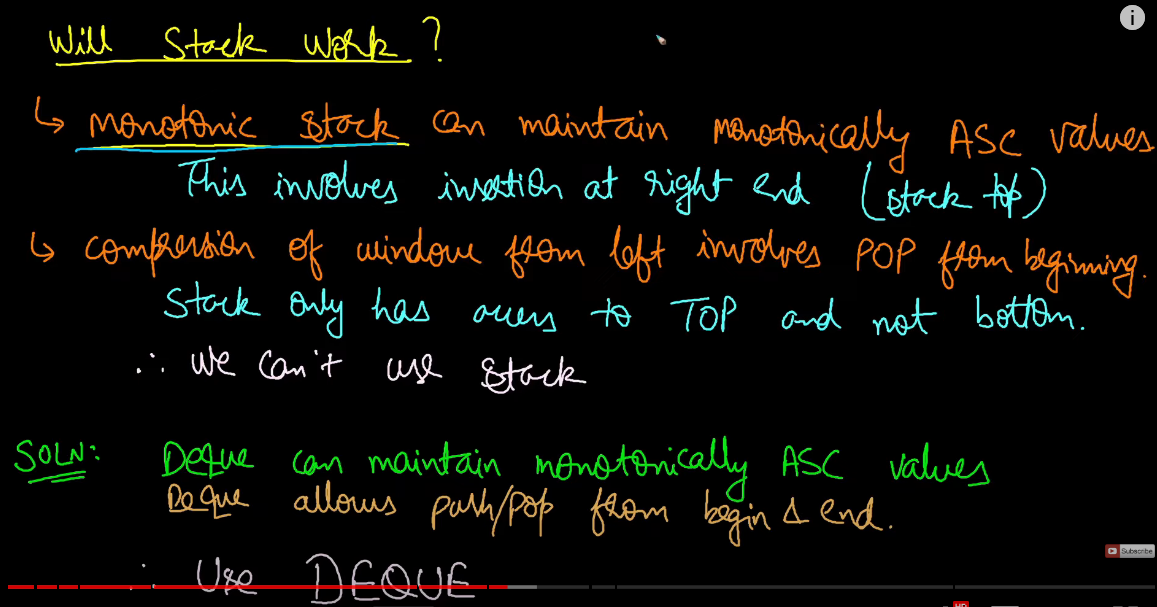 Will Stack Work?
↳ Monotonic stack can maintain monotonically ASC values
This involves insertion at right end (stack top)
↳ compression of window from left involves POP from beginning.
Stack only has access to TOP and not bottom.
∴ We can't use stack
SOLN: Deque can maintain monotonically ASC values
Deque allows push/pop from begin & end.
Subscribe
∴ Use DEQUE
HD